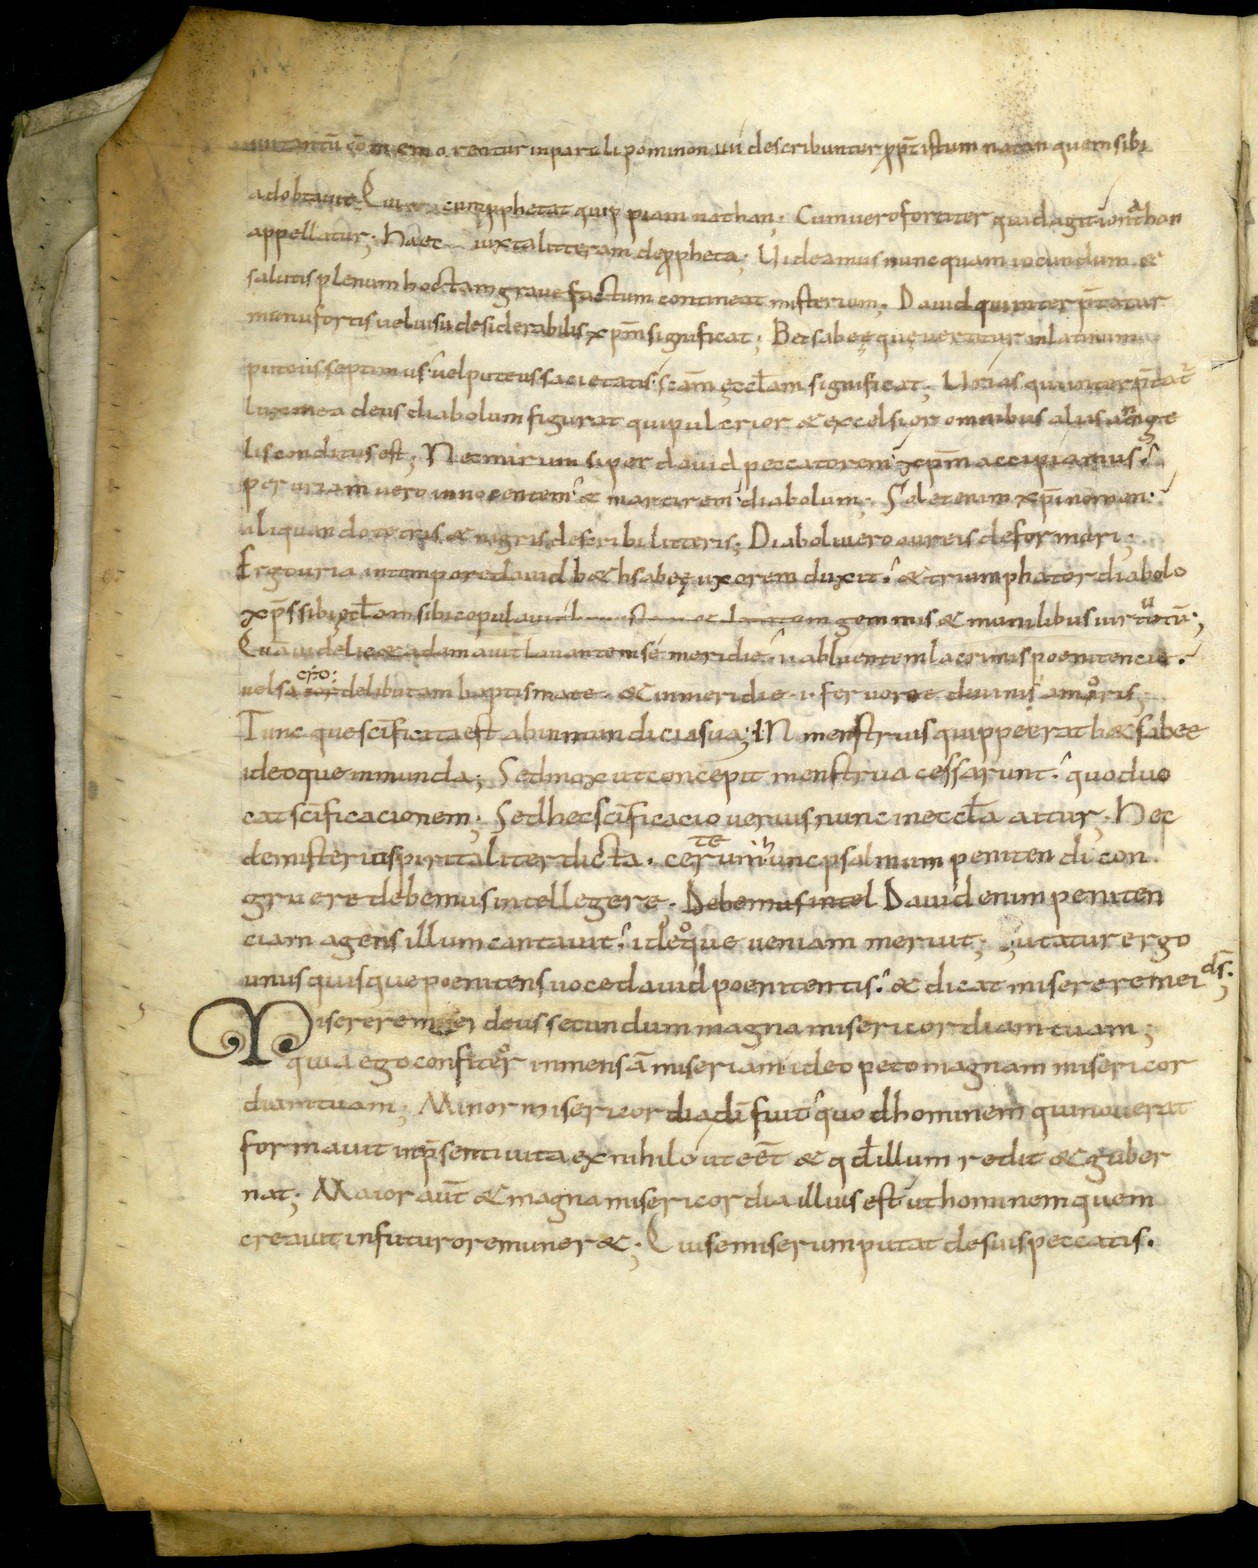 tantū cōmemorentur inparalipominon uii describuntur ꝓpt̄ istum natan quem sibi
adobtauit Cum ꝓphetat quippiam nathan; Cum uero fortiter quid agit ionathan
appellatur; Haec iuxta litteram de ꝓpheta; Uideamus nunc quam iocundum &
salutis plenum hoc tam graue factum contineat misterium; Dauid qui interp̄tatur
manu fortis uel uisu desiderabilis xp̄m significat; Betsabeę quę uertitur in latinum
puteus septimus uel puteus sacietatis scām ęccl̄am significat; Urias qui interp̄tatr̄
lux mea deus diabolum figurat qui pulcrior & excelsior omnibus aliis ange
lis conditus est; Nec mirum si per dauid peccatorem xp̄m accipiamus
per uriam uero innocentem & martirem diabolum; Solet enim xp̄i nomen
aliquando tetris & nigris describi litteris; Diaboli uero aureis deformari;
Ergo uria in tempore dauid b&hsabeę uxorem duxit & triumphator diabolo
xp̄s sibi ęccl̄am sibi copulauit gemmis & munilibus uirtutū;
Quā uidelic& adamauit lauantem se meridie abluentem lacrimis poenitencie
uel sacrō delibutam baptismate & in meridie .i. feruore diuini amoris
Tunc que scīficata est ab inmundicia sua; IN menstruis quippe erat b&sabee
ideoque inmunda; Sed mox ut concepit menstrua cessarunt quod uo
cat scīficacionem; Sed hec scīficacio uerius nunc in eccl̄a aitur; Hec
de misteriis spiritaliter dicta. ceterum hunc psalmum penitendi con
gruere debemus intellegere; Debemus intel Dauid enim peniten
ciam agens illum cantauit ideoque ueniam meruit; utatur ergo
unusquisque poenitens uoce dauid poenitentis & dicat miserere mei ds̄;
Miserere mei deus secundum magna misericordiam tuam;
quia ego confiteor inmensā miseriam ideo peto magnam misericor
diam tuam; Minor misericordia dī fuit quod hominem qui no uerat
formauit in p̄senti uita ex nihilo ut eēt & qd̄ illum redit & guber
nat; Maior aut̄ & magna misericordia illius est ut hominem quem
creauit in futuro remuner&; Qui se miserum putat de suis peccatis.